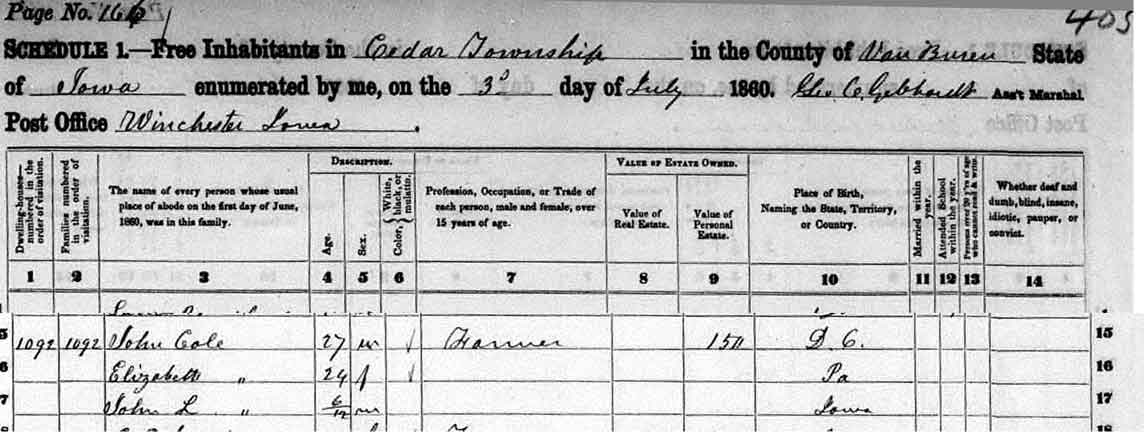 Page No. 166 403
SCHEDULE 1.—Free Inhabitants in Cedar Township in the County of Van Buren State
of Iowa enumerated by me, on the 3d day of July 1860. Geo. C. Gebhardt Ass't Marshal
Post Office Winchester Iowa.
Dwelling-houses—numbered in the order of visitation.
Families numbered in the order of visitation.
The name of every person whose usual place of abode on the first day of June, 1860, was in this family.
DESCRIPTION.
Age.
Sex.
Color, { White, black, or mulatto.
Profession, Occupation, or Trade of each person, male and female, over 15 years of age.
VALUE OF ESTATE OWNED.
Value of Real Estate.
Value of Personal Estate.
Place of Birth, Naming the State, Territory, or Country.
Married within the year.
Attended School within the year.
Persons over 20 y'rs of age who cannot read & write.
Whether deaf and dumb, blind, insane, idiotic, pauper, or convict.
1 2 3 4 5 6 7 8 9 10 11 12 13 14
5 1092 1092 John Cole 27 m / Farmer 150 D. C. 15
6 Elizabeth " 24 f / Pa 16
7 John L " 6/12 m Iowa 17
18